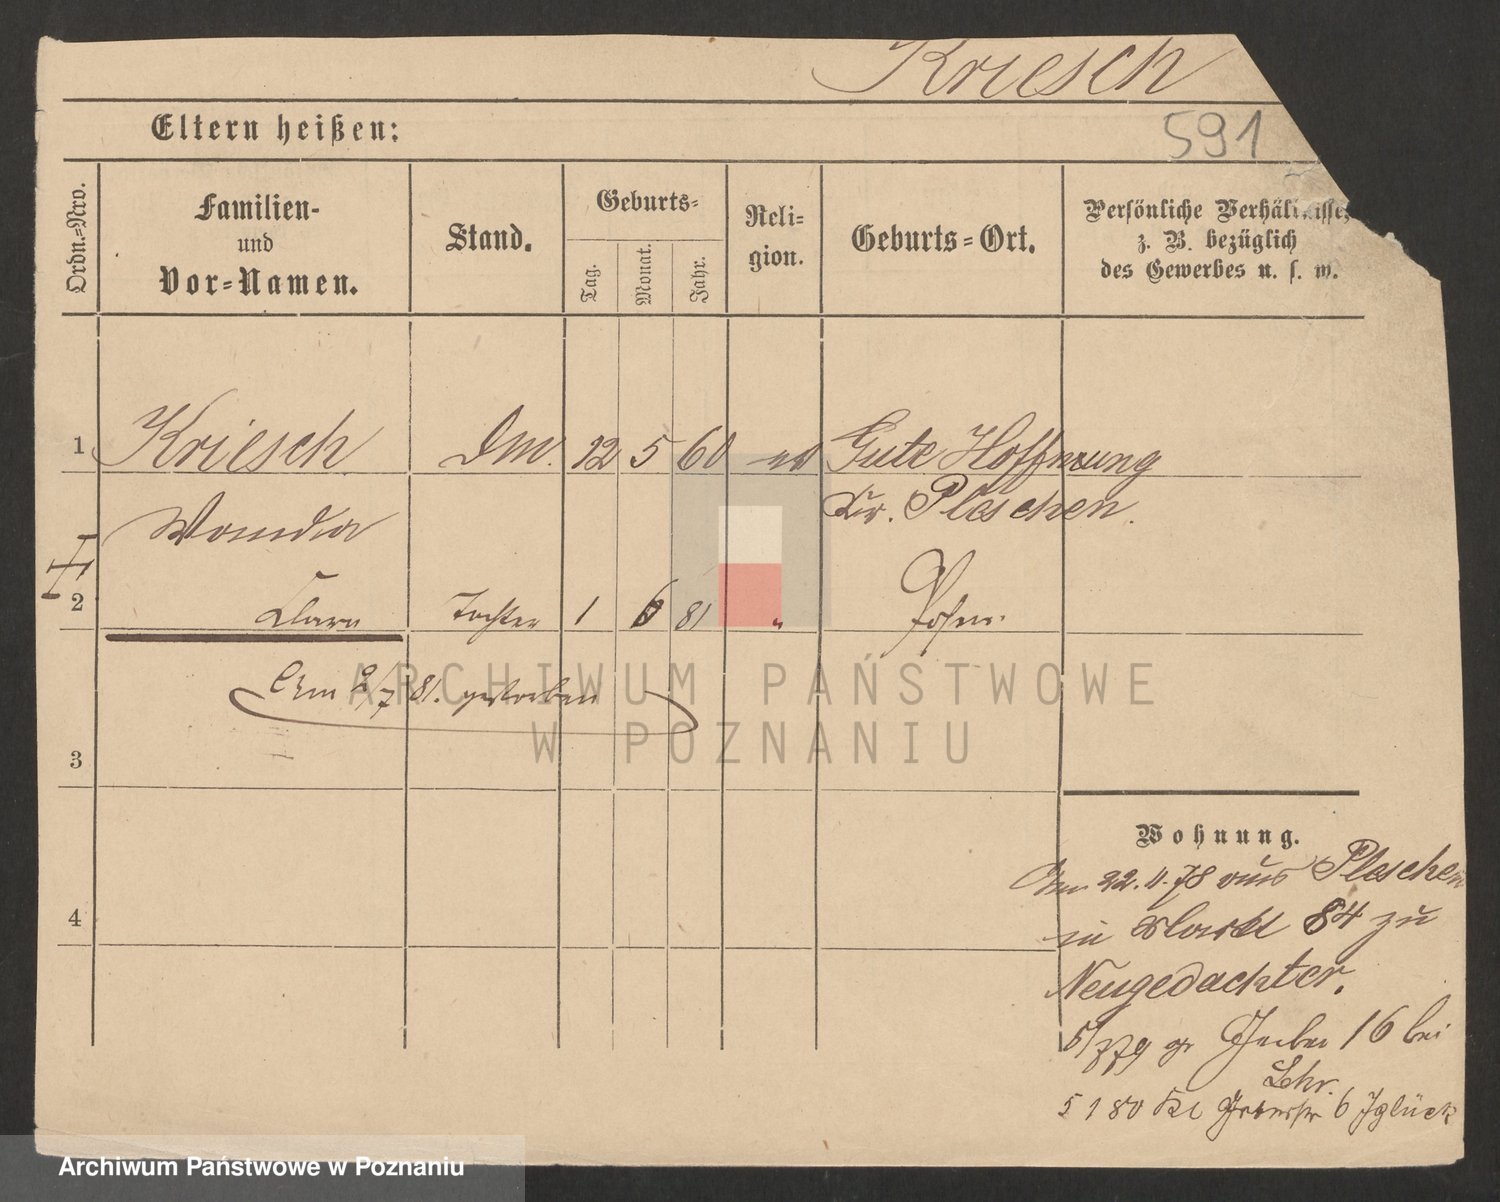 Kriesch
591
Eltern heißen:
Ordn.-Nro.
Familien-
und
Vor-Namen.
Stand.
Geburts-
Tag.
Monat.
Jahr.
Reli-
gion.
Geburts-Ort.
Persönliche Verhältnisse
z. B. bezüglich
des Gewerbes u. s. w.
1 Kriesch 12 5 60 Gute Hoffnung
Wanda Kr. Pleschen.
2 Clara Tochter 1 6 81 " Posen.
Am 2/7 81. gestorben
3
4
Wohnung.
22. 4. 78 aus Pleschen
in Markt 84 zu
Neugedachter.
5/7 79 gr Gerber 16 bei
Lehr.
5 1 80 Kl Gerberstr 6 Jglück
ARCHIWUM PAŃSTWOWE
W POZNANIU
Archiwum Państwowe w Poznaniu